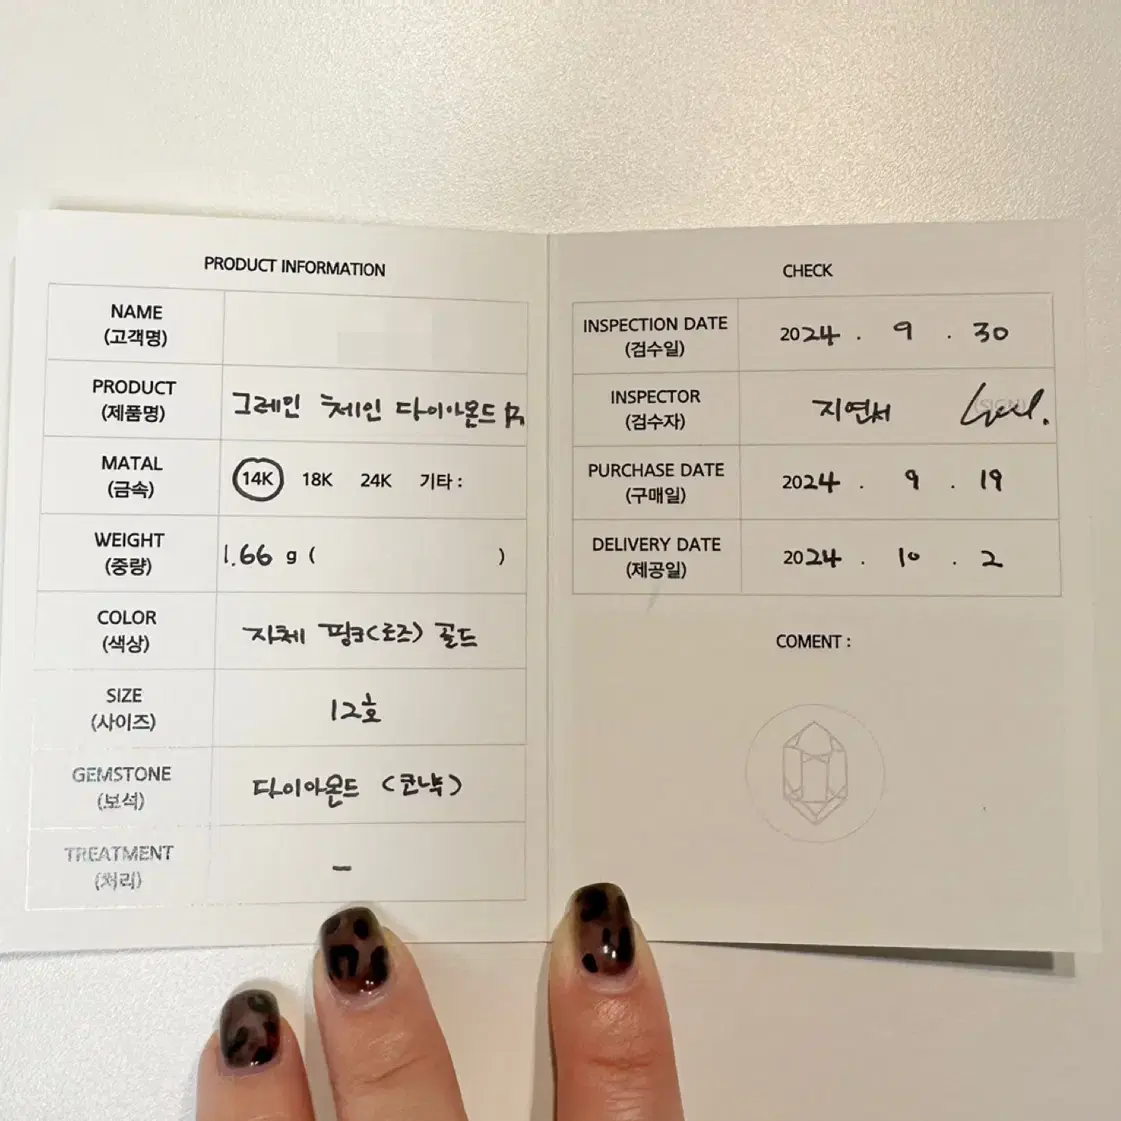 PRODUCT INFORMATION
NAME
(고객명)
PRODUCT
(제품명)
그레인 체인 다이아몬드
MATAL
(금속)
14K 18K 24K 기타 :
WEIGHT
(중량)
1.66 g ( )
COLOR
(색상)
자체 핑크(로즈) 골드
SIZE
(사이즈)
12호
GEMSTONE
(보석)
다이아몬드 (코냑)
TREATMENT
(처리)
-
CHECK
INSPECTION DATE
(검수일)
2024 . 9 . 30
INSPECTOR
(검수자)
지연서 (SIGN)
PURCHASE DATE
(구매일)
2024 . 9 . 19
DELIVERY DATE
(제공일)
2024 . 10 . 2
COMENT :